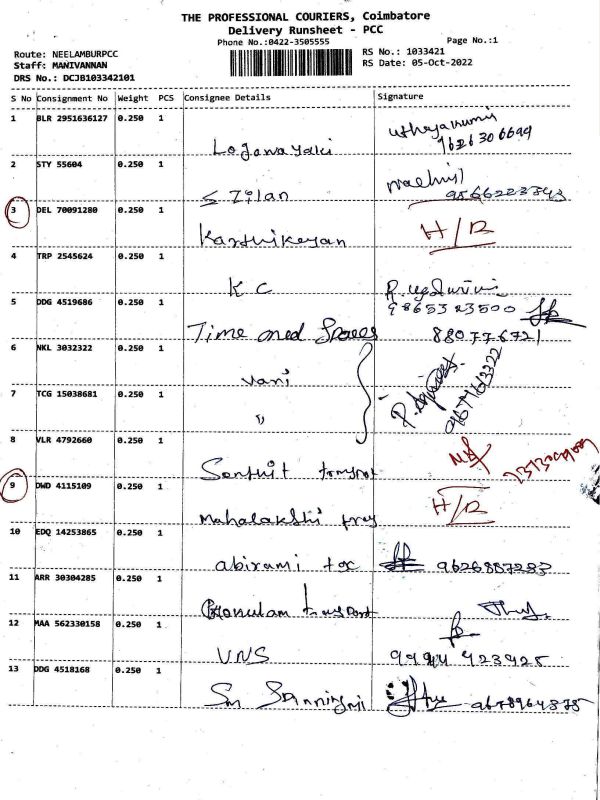 THE PROFESSIONAL COURIERS, Coimbatore
Delivery Runsheet - PCC
Phone No.:0422-3505555 Page No.:1
Route: NEELAMBURPCC RS No.: 1033421
Staff: MANIVANNAN RS Date: 05-Oct-2022
DRS No.: DCJB103342101
S No Consignment No Weight PCS Consignee Details Signature
1 BLR 2951636127 0.250 1
9626306699
Logonayaki
2 STY 55604 0.250 1
S Zilan
3 DEL 70091280 0.250 1
Karthikeyan H/R
4 TRP 2545624 0.250 1
K C
9865323500
5 DDG 4519686 0.250 1
Time and Spaces 880776721
6 NKL 3032322 0.250 1
Vani
7 TCG 15038681 0.250 1
"
8 VLR 4792660 0.250 1
9 DWD 4115109 0.250 1 H/R
10 EDQ 14253865 0.250 1
abirami tex 9626887283
11 ARR 30304285 0.250 1
12 MAA 562330158 0.250 1
VNS 9994 923925
13 DDG 4518168 0.250 1